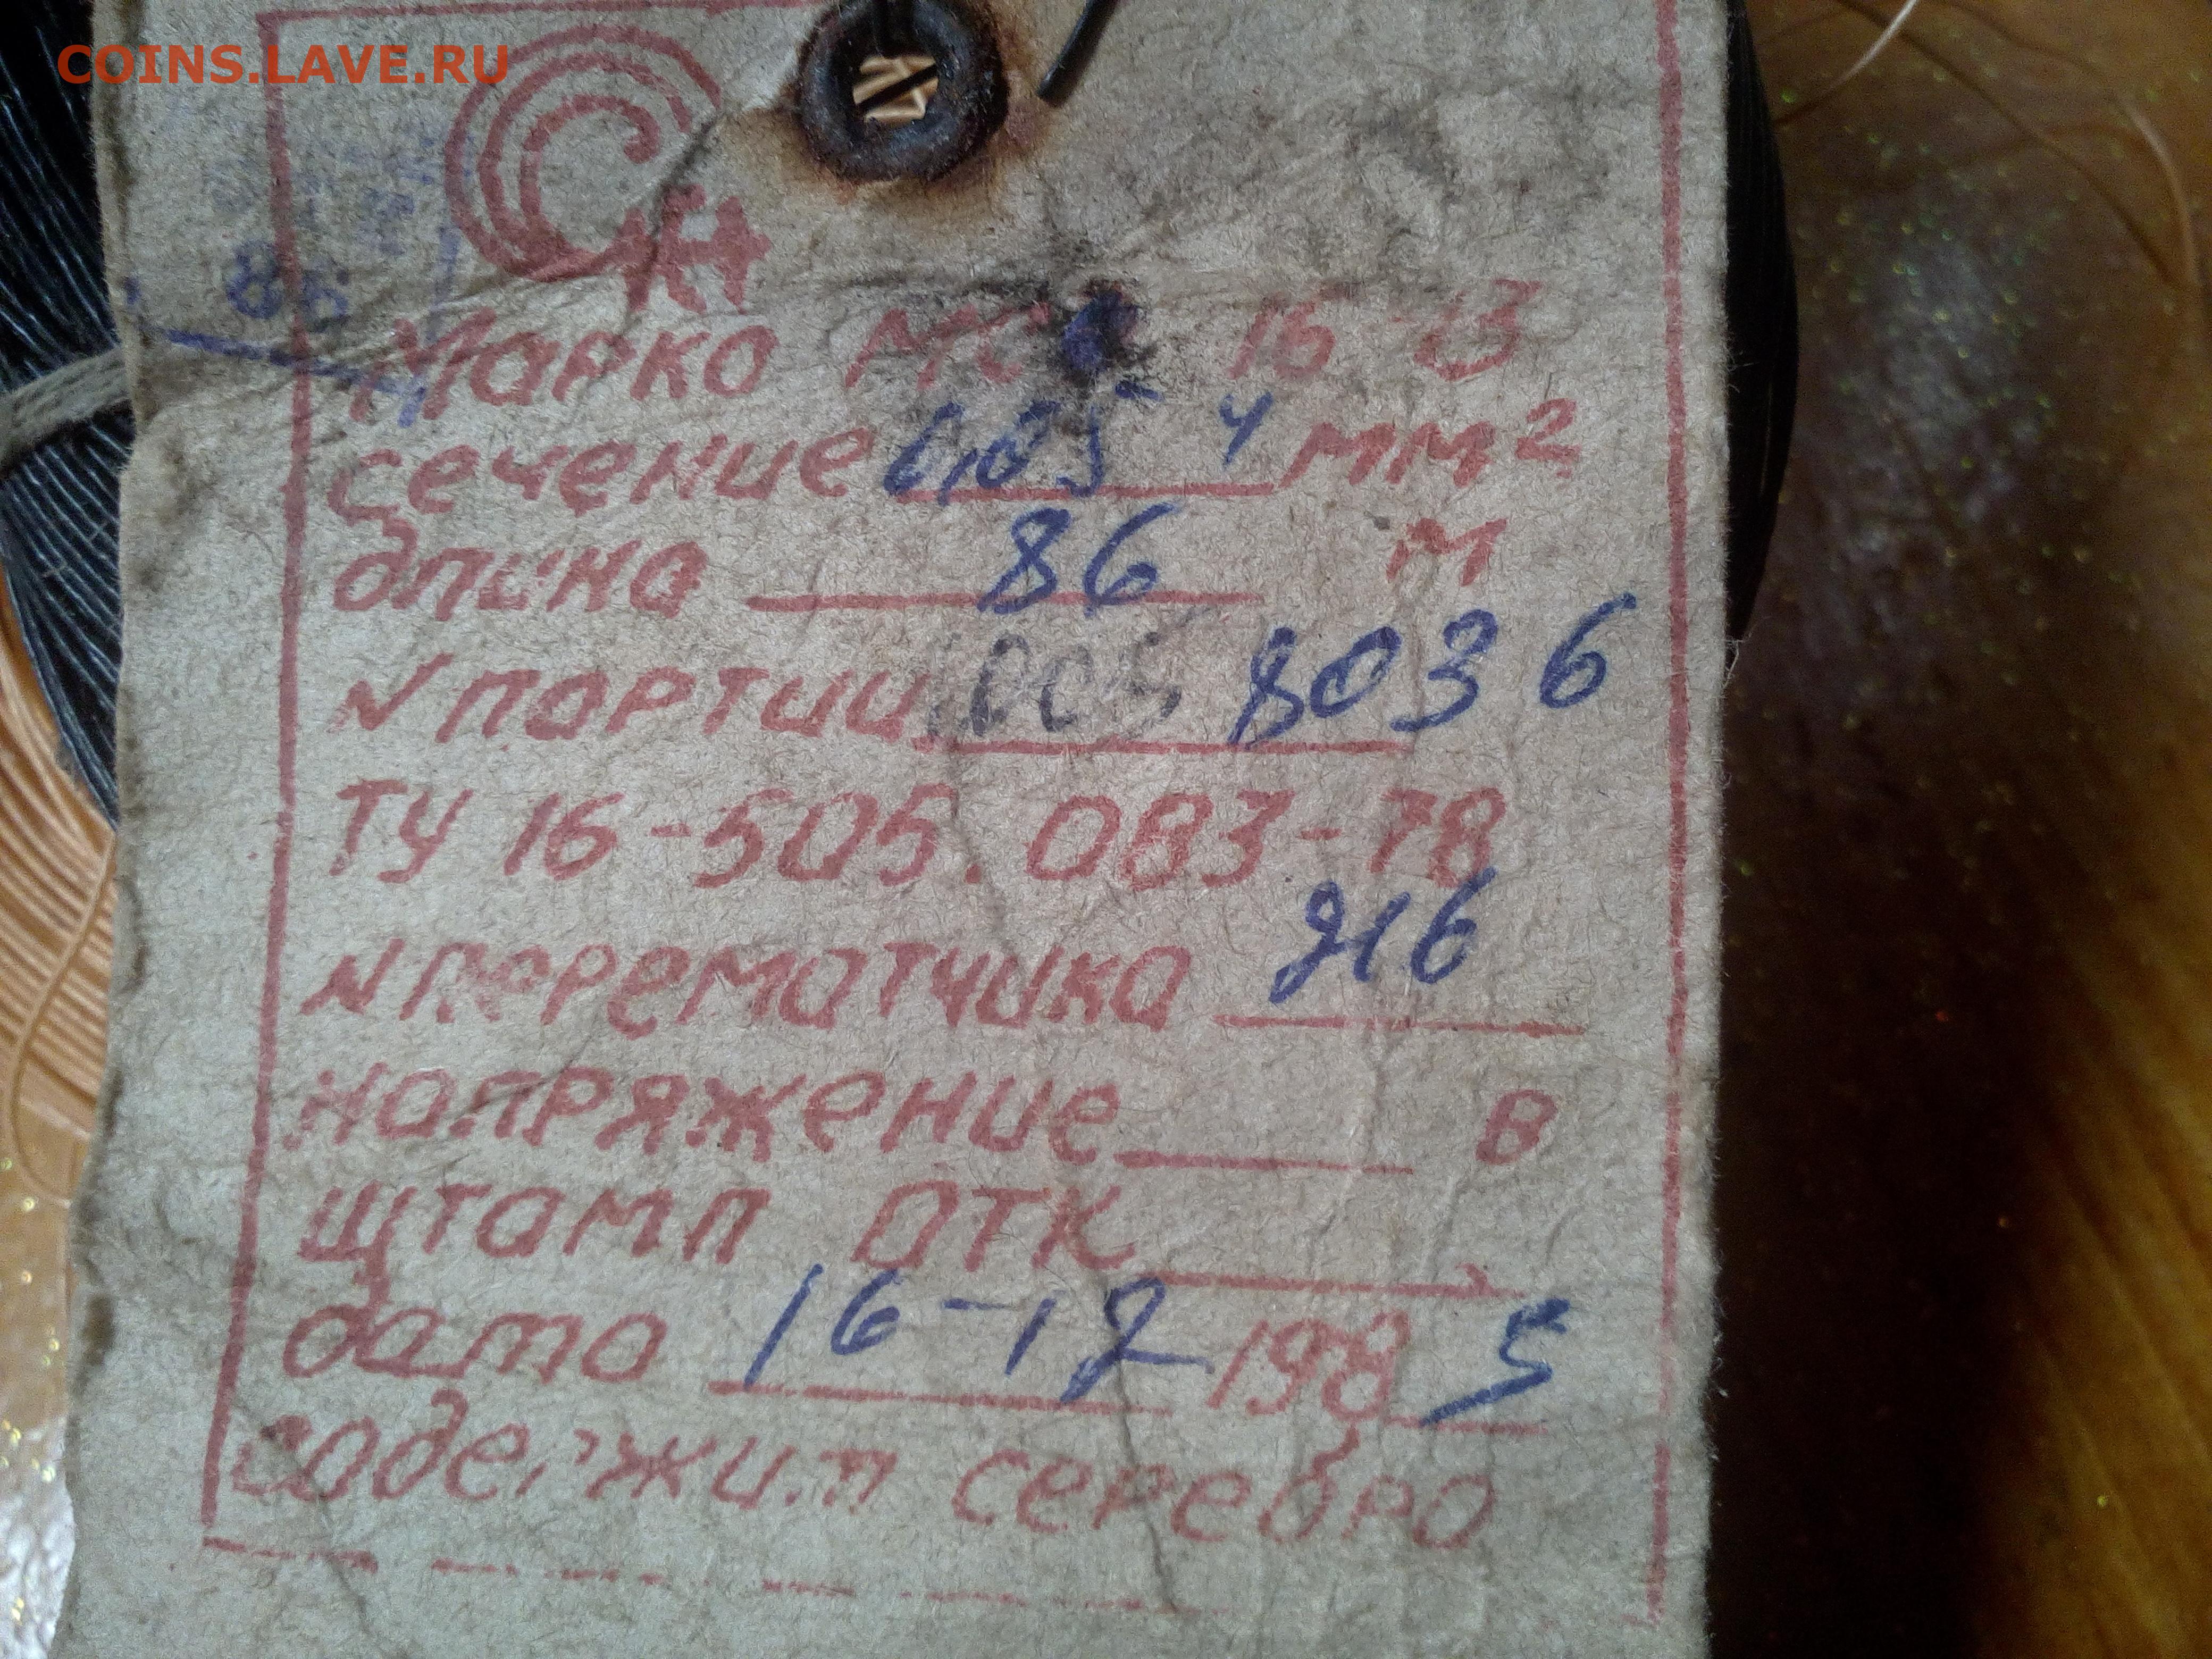 COINS.LAVE.RU
86
Марка МС 16-13
сечение 0,05 ч мм²
длина 86 м
N партии 005 8036
ТУ 16-505.083-78
N перематчика 216
напряжение В
штамп ОТК
дата 16-12 1985
содержит серебро